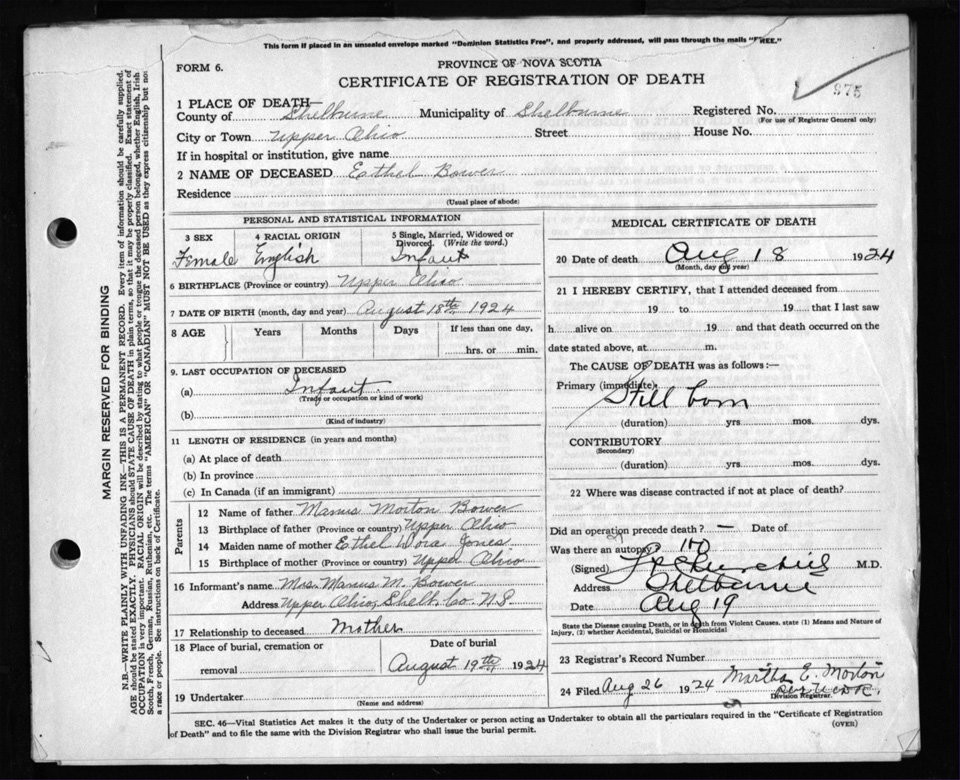 This form if placed in an unsealed envelope marked "Dominion Statistics Free", and properly addressed, will pass through the mails "FREE."
FORM 6.
PROVINCE OF NOVA SCOTIA
CERTIFICATE OF REGISTRATION OF DEATH
975
1 PLACE OF DEATH—
County of Shelburne Municipality of Shelburne Registered No.
(For use of Registrar General only)
City or Town Upper Ohio Street House No.
If in hospital or institution, give name
2 NAME OF DECEASED Eathel Bower
Residence
(Usual place of abode)
PERSONAL AND STATISTICAL INFORMATION
3 SEX 4 RACIAL ORIGIN 5 Single, Married, Widowed or Divorced. (Write the word.)
Female English Infant
6 BIRTHPLACE (Province or country) Upper Ohio
7 DATE OF BIRTH (month, day and year) August 18th 1924
8 AGE Years Months Days If less than one day,
hrs. or min.
9. LAST OCCUPATION OF DECEASED
(a) Infant
(Trade or occupation or kind of work)
(b)
(Kind of industry)
11 LENGTH OF RESIDENCE (in years and months)
(a) At place of death
(b) In province
(c) In Canada (if an immigrant)
Parents
12 Name of father Manus Morton Bower
13 Birthplace of father (Province or country) Upper Ohio
14 Maiden name of mother Ethel Dora Jones
15 Birthplace of mother (Province or country) Upper Ohio
16 Informant's name Mrs. Manus M. Bower
Address Upper Ohio, Shelb. Co. N.S.
17 Relationship to deceased Mother
18 Place of burial, cremation or Date of burial
removal August 19th 1924
19 Undertaker
(Name and address)
MEDICAL CERTIFICATE OF DEATH
20 Date of death Aug 18 1924
(Month, day and year)
21 I HEREBY CERTIFY, that I attended deceased from
19 to 19 that I last saw
h alive on 19 and that death occurred on the
date stated above, at m.
The CAUSE OF DEATH was as follows:—
Primary (immediate)
Still born
(duration) yrs. mos. dys.
CONTRIBUTORY
(Secondary)
(duration) yrs. mos. dys.
22 Where was disease contracted if not at place of death?
Did an operation precede death? — Date of
Was there an autopsy? no
(Signed) Churchill M.D.
Address Shelburne
Date Aug 19
State the Disease causing Death, or in death from Violent Causes, state (1) Means and Nature of
Injury, (2) whether Accidental, Suicidal or Homicidal
23 Registrar's Record Number
24 Filed Aug 26 1924 Martha E. Morton
Division Registrar.
SEC. 46—Vital Statistics Act makes it the duty of the Undertaker or person acting as Undertaker to obtain all the particulars required in the "Certificate of Registration
of Death" and to file the same with the Division Registrar who shall issue the burial permit.
(OVER)
MARGIN RESERVED FOR BINDING
N.B.—WRITE PLAINLY WITH UNFADING INK—THIS IS A PERMANENT RECORD. Every item of information should be carefully supplied.
AGE should be stated EXACTLY. PHYSICIANS should STATE CAUSE OF DEATH in plain terms, so that it may be properly classified. Exact statement of
OCCUPATION is very important. RACIAL ORIGIN will be described by stating to what people or tongue the deceased person belonged, whether English, Irish
Scotch, French, German, Russian, Ruthenian, etc. The terms "AMERICAN" OR "CANADIAN" MUST NOT BE USED as they express citizenship but not
a race or people. See instructions on back of Certificate.